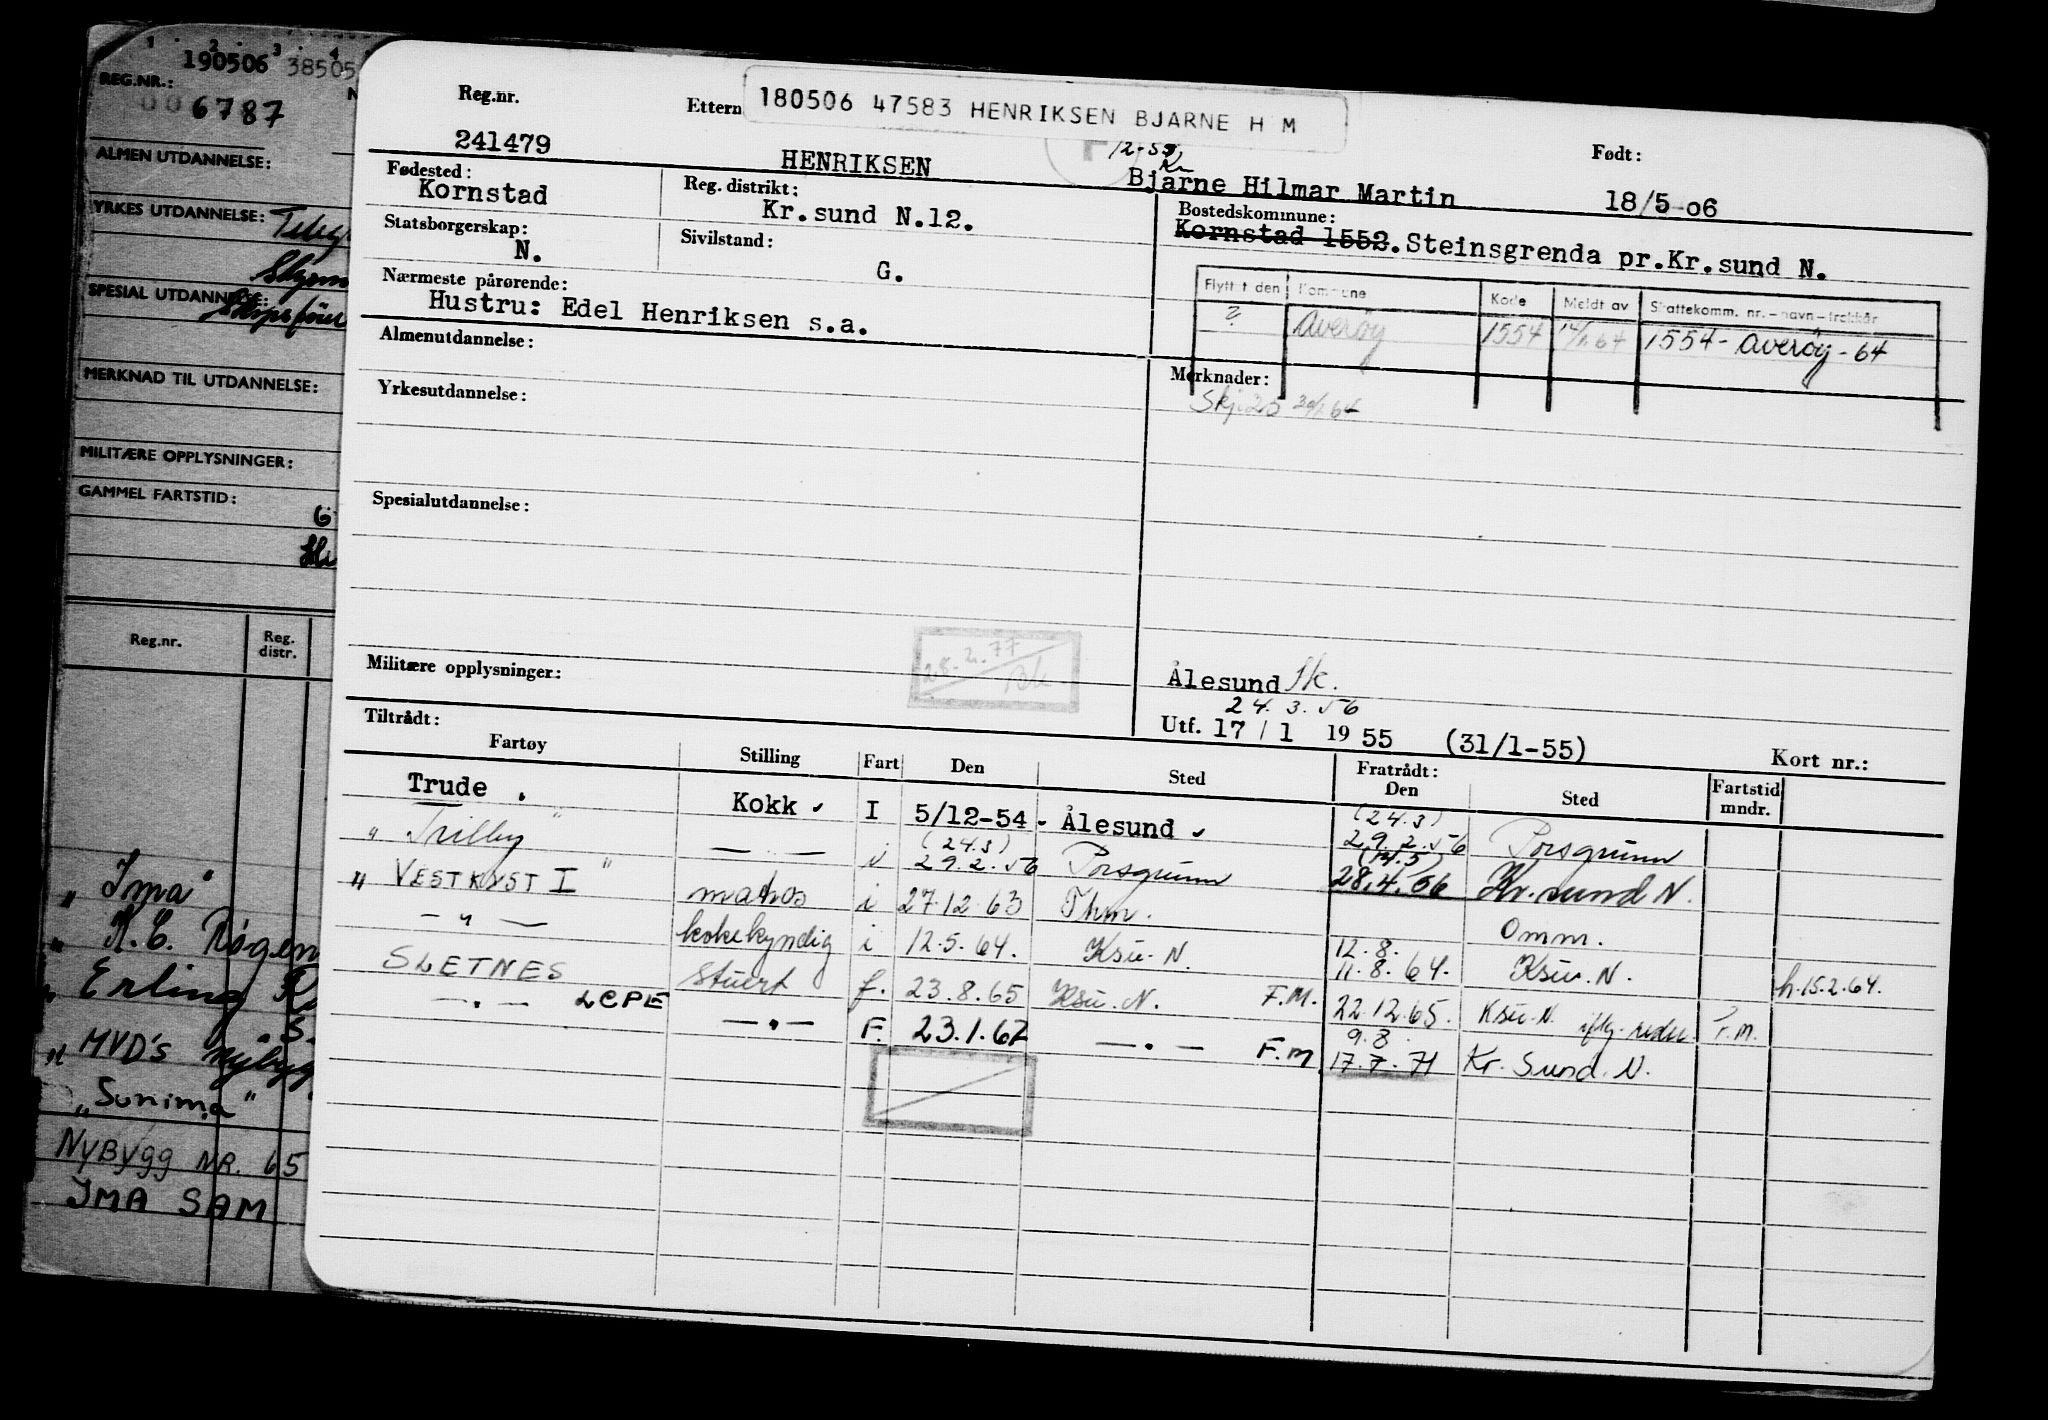 190506 38505
REG.NR.:
006787
ALMEN UTDANNELSE:
YRKES UTDANNELSE:
SPESIAL UTDANNELSE:
MERKNAD TIL UTDANNELSE:
MILITÆRE OPPLYSNINGER:
GAMMEL FARTSTID:
Reg.nr. Reg. distr.
"Ima"
" K.E. Røgen
" Erling
" MVD's Nybygg
"Sunima"
NYBYGG NR. 65
IMA SAM
Reg.nr. Ettern
180506 47583 HENRIKSEN BJARNE H M
Født:
12-55
241479 HENRIKSEN Bjarne Hilmar Martin 18/5-06
Fødested: Kornstad
Reg. distrikt: Kr.sund N.12.
Bostedskommune: Kornstad 1552. Steinsgrenda pr.Kr.sund N.
Statsborgerskap: N.
Sivilstand: G.
Nærmeste pårørende:
Hustru: Edel Henriksen s.a.
Flytt t den Kommune Kode Meldt av Skattekomm. nr.-navn-trekkår
? Averøy 1554 14/1 64 1554- Averøy - 64
Almenutdannelse:
Merknader:
Yrkesutdannelse:
Skj.25 64
Spesialutdannelse:
28.2.77
Militære opplysninger:
Ålesund
24.3.56
Utf. 17 / 1 19 55 (31/1-55)
Kort nr.:
Tiltrådt:
Fartøy Stilling Fart Den Sted Fratrådt: Den Sted Fartstid mndr.
Trude Kokk I 5/12-54 Ålesund (24.3) 29.2.56 Porsgrunn
" Trilby " — — i (24.3) 29.2.56 Porsgrunn (14.5) 28.4.56 Kr.sund N.
" VESTKYST I " matros i 27.12.63 Thm. Omm.
— " — kokekyndig i 12.5.64. Ksu.N. 12.8. 11.8.64. Ksu.N. h.15.2.64.
SLETNES Stuert f. 23.8.65 Ksu.N. F.M. 22.12.65. Ksu.N. F.M.
— . — LCPE — . — F. 23.1.67 — . — F.M. 9.8. 17.7.71 Kr.Sund.N.